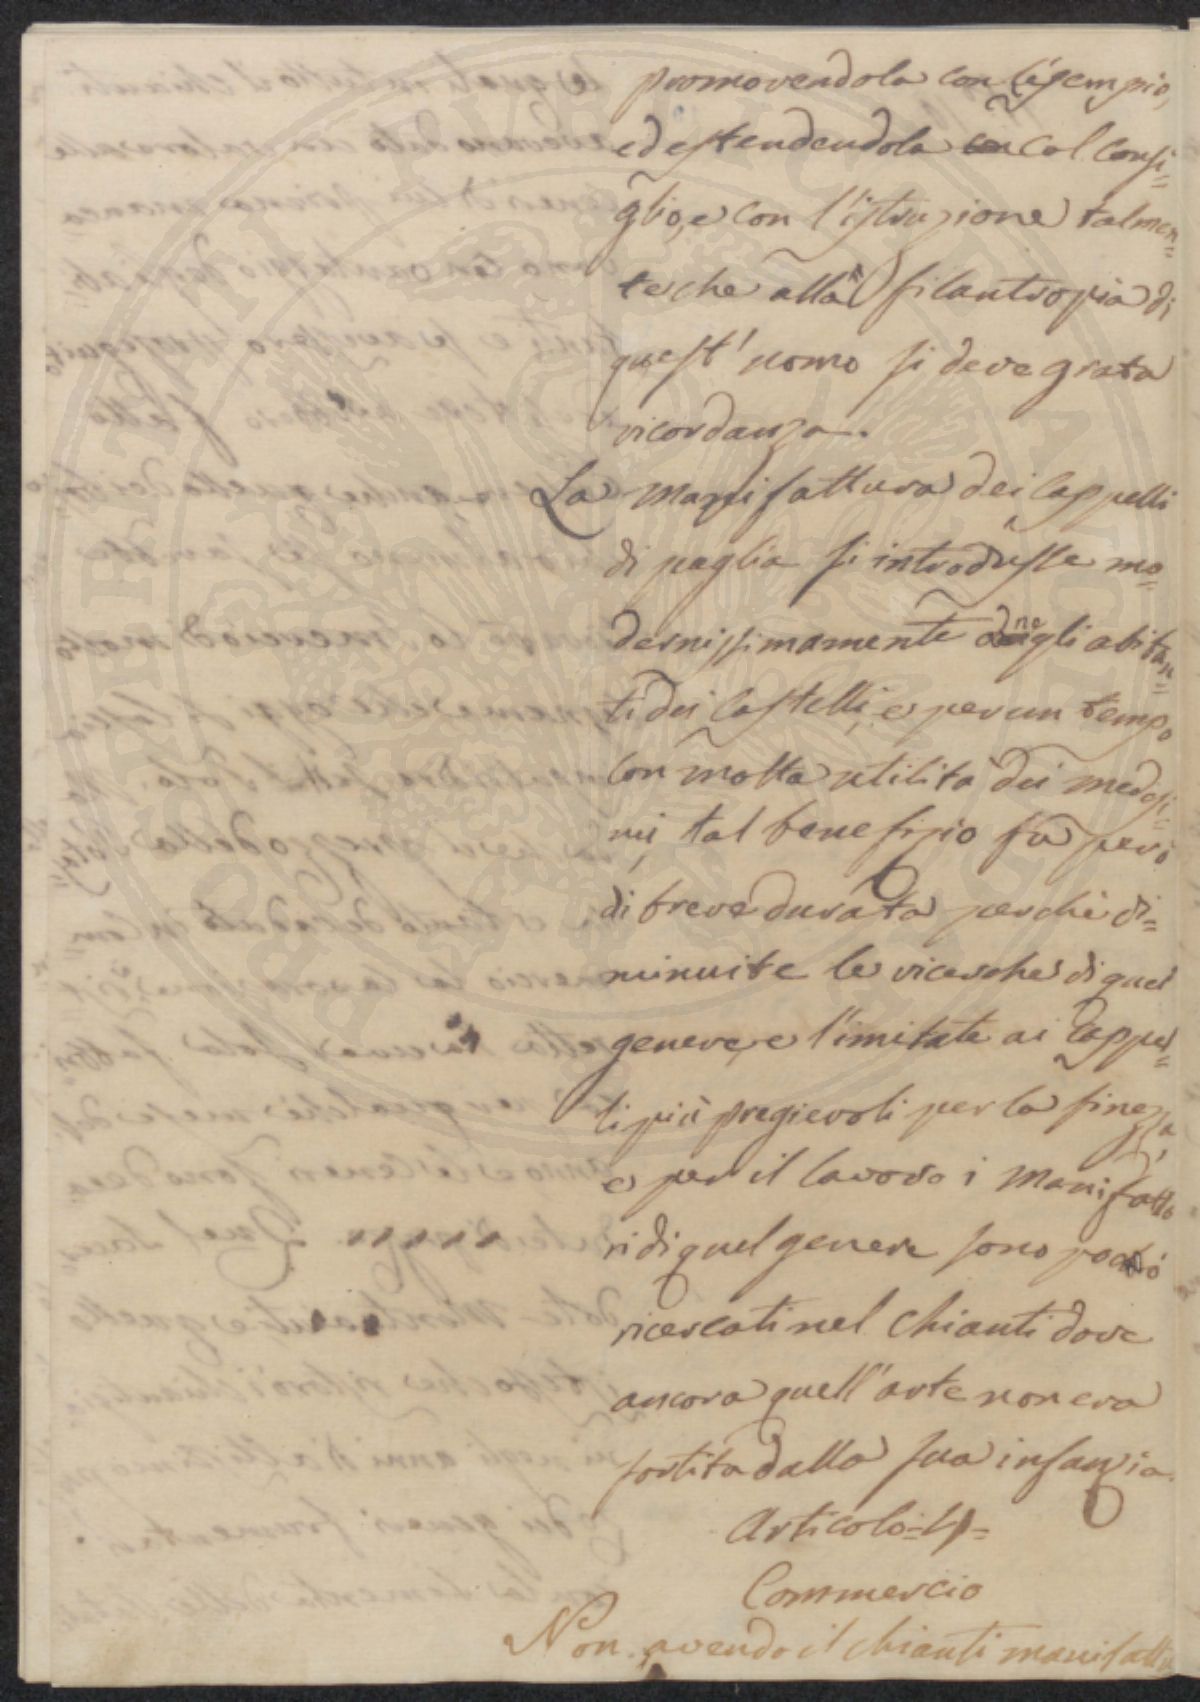 promovendola con l'esempio,
ed estendendola col Consi=
glio, e con l'istruzione talmen=
te che alla filantropia di
quest' uomo si deve grata
ricordanza.
La manifattura dei Cappelli
di paglia si introdusse mo=
dernissimamente negli abitan=
ti dei Castelli, e per un tempo
con molta utilità dei medesi=
mi, tal benefizio fu però
di breve durata perchè di=
minuite le ricerche di quel
genere, e l'imitate ai Cappel=
li più pregievoli per la finezza,
e per il lavoro i manifatto
ri di quel genere sono poco
ricercati nel Chianti dove
ancora quell'arte non era
sortita dalla sua infanzia.
Articolo
Commercio
Non avendo il Chianti manifattu